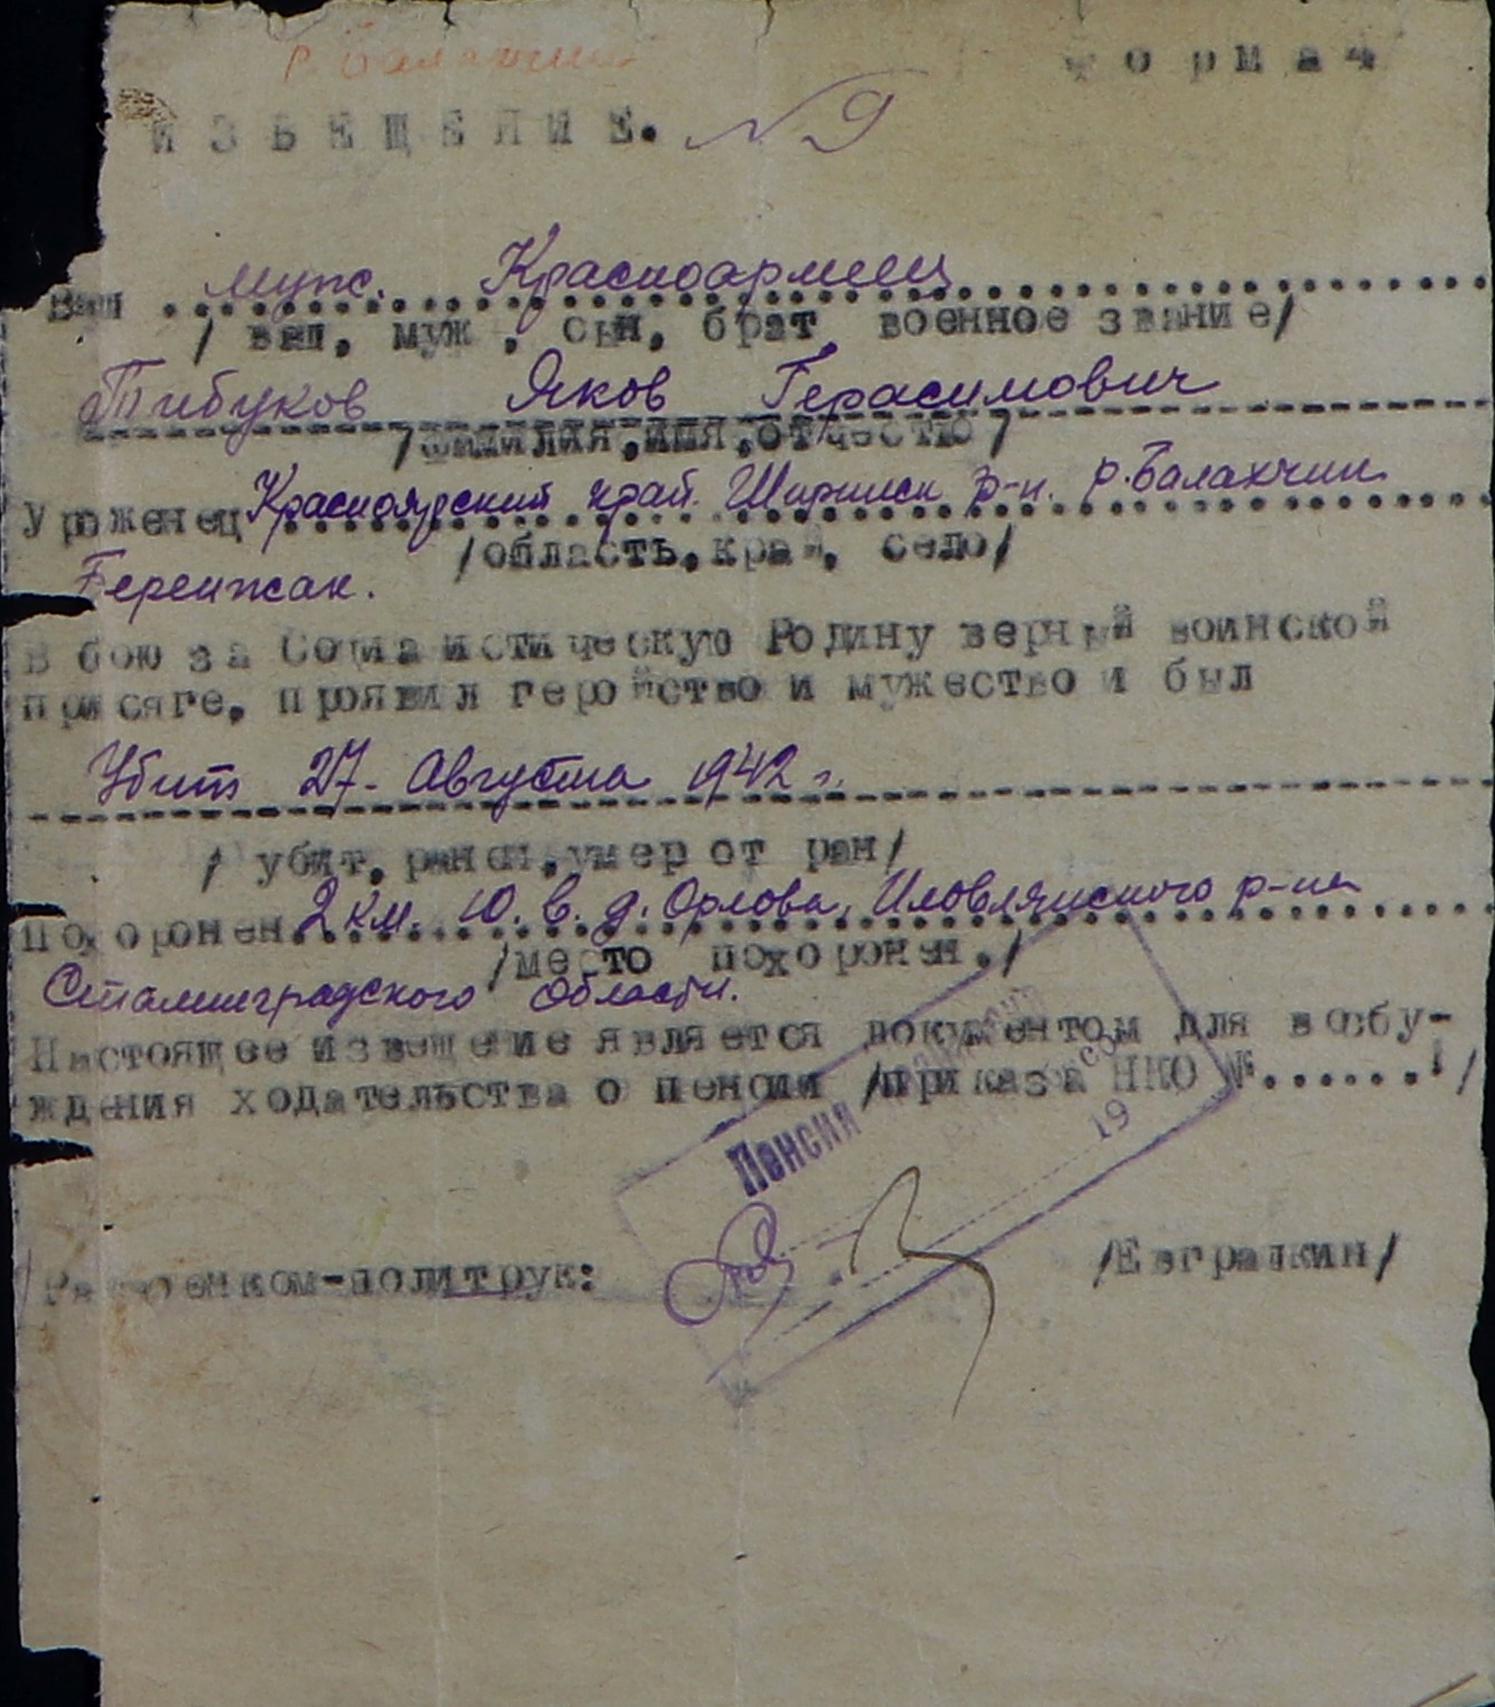 р. Балахчин
Форма 4
ИЗВЕЩЕНИЕ. N 9
Ваш муж. Красноармеец
/ ваш, муж, сын, брат, военное звание/
Тибуков Яков Герасимович
/фамилия, имя, отчество/
Уроженец Красноярский край. Ширинск р-н. р. Балахчин
/область, край, село/
Беренжак.
В бою за Социалистическую Родину верный воинской
присяге, проявил геройство и мужество и был
Убит 27 - Августа 1942 г.
/ убит, ранен, умер от ран/
Похоронен 2 км. Ю. В. д. Орлова, Иловлянского р-на
/место похорон./
Сталинградского области.
Настоящее извещение является документом для возбу-
ждения ходательства о пенсии /приказа НКО №.......!/
Пенсия
19
Райвоенком-политрук: /Евграшкин/